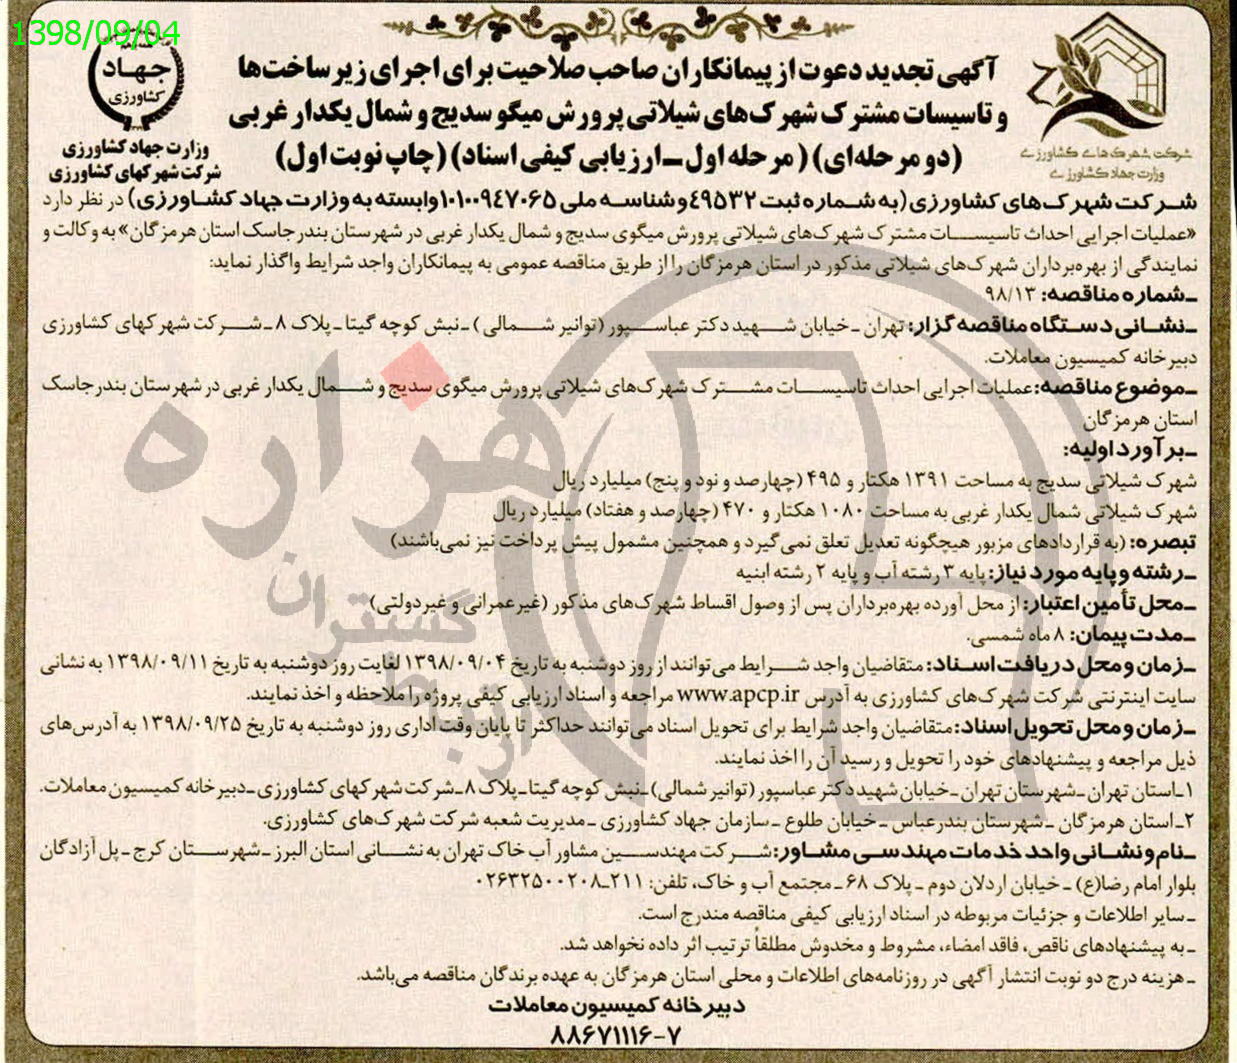 1398/09/04
جهاد
کشاورزی
وزارت جهاد کشاورزی
شرکت شهرکهای کشاورزی
شرکت شهرک‌های کشاورزی
وزارت جهاد کشاورزی
آگهی تجدید دعوت از پیمانکاران صاحب صلاحیت برای اجرای زیرساخت‌ها
و تاسیسات مشترک شهرک‌های شیلاتی پرورش میگو سدیج و شمال یکدار غربی
(دو مرحله‌ای) (مرحله اول ـ ارزیابی کیفی اسناد) (چاپ نوبت اول)
شرکت شهرک‌های کشاورزی (به شماره ثبت ۴۹۵۳۲ و شناسه ملی ۱۰۱۰۰۹۴۷۰۶۵ وابسته به وزارت جهاد کشاورزی) در نظر دارد
«عملیات اجرایی احداث تاسیسات مشترک شهرک‌های شیلاتی پرورش میگوی سدیج و شمال یکدار غربی در شهرستان بندرجاسک استان هرمزگان» به وکالت و
نمایندگی از بهره‌برداران شهرک‌های شیلاتی مذکور در استان هرمزگان را از طریق مناقصه عمومی به پیمانکاران واجد شرایط واگذار نماید:
ـ شماره مناقصه: ۹۸/۱۳
ـ نشانی دستگاه مناقصه گزار: تهران ـ خیابان شهید دکتر عباسپور (توانیر شمالی) ـ نبش کوچه گیتا ـ پلاک ۸ ـ شرکت شهرکهای کشاورزی
دبیرخانه کمیسیون معاملات.
ـ موضوع مناقصه: عملیات اجرایی احداث تاسیسات مشترک شهرک‌های شیلاتی پرورش میگوی سدیج و شمال یکدار غربی در شهرستان بندرجاسک
استان هرمزگان
ـ برآورد اولیه:
شهرک شیلاتی سدیج به مساحت ۱۳۹۱ هکتار و ۴۹۵ (چهارصد و نود و پنج) میلیارد ریال
شهرک شیلاتی شمال یکدار غربی به مساحت ۱۰۸۰ هکتار و ۴۷۰ (چهارصد و هفتاد) میلیارد ریال
تبصره: (به قراردادهای مزبور هیچگونه تعدیل تعلق نمی‌گیرد و همچنین مشمول پیش پرداخت نیز نمی‌باشند)
ـ رشته و پایه مورد نیاز: پایه ۳ رشته آب و پایه ۲ رشته ابنیه
ـ محل تأمین اعتبار: از محل آورده بهره‌برداران پس از وصول اقساط شهرک‌های مذکور (غیرعمرانی و غیردولتی)
ـ مدت پیمان: ۸ ماه شمسی.
ـ زمان و محل دریافت اسناد: متقاضیان واجد شرایط می‌توانند از روز دوشنبه به تاریخ ۱۳۹۸/۰۹/۰۴ لغایت روز دوشنبه به تاریخ ۱۳۹۸/۰۹/۱۱ به نشانی
سایت اینترنتی شرکت شهرک‌های کشاورزی به آدرس www.apcp.ir مراجعه و اسناد ارزیابی کیفی پروژه را ملاحظه و اخذ نمایند.
ـ زمان و محل تحویل اسناد: متقاضیان واجد شرایط برای تحویل اسناد می‌توانند حداکثر تا پایان وقت اداری روز دوشنبه به تاریخ ۱۳۹۸/۰۹/۲۵ به آدرس‌های
ذیل مراجعه و پیشنهادهای خود را تحویل و رسید آن را اخذ نمایند.
۱ـ استان تهران ـ شهرستان تهران ـ خیابان شهید دکتر عباسپور (توانیر شمالی) ـ نبش کوچه گیتا ـ پلاک ۸ ـ شرکت شهرکهای کشاورزی ـ دبیرخانه کمیسیون معاملات.
۲ـ استان هرمزگان ـ شهرستان بندرعباس ـ خیابان طلوع ـ سازمان جهاد کشاورزی ـ مدیریت شعبه شرکت شهرک‌های کشاورزی.
ـ نام و نشانی واحد خدمات مهندسی مشاور: شرکت مهندسین مشاور آب خاک تهران به نشانی استان البرز ـ شهرستان کرج ـ پل آزادگان
بلوار امام رضا(ع) ـ خیابان اردلان دوم ـ پلاک ۶۸ ـ مجتمع آب و خاک، تلفن: ۲۱۱ـ۰۲۶۳۲۵۰۰۲۰۸
ـ سایر اطلاعات و جزئیات مربوطه در اسناد ارزیابی کیفی مناقصه مندرج است.
ـ به پیشنهادهای ناقص، فاقد امضاء، مشروط و مخدوش مطلقاً ترتیب اثر داده نخواهد شد.
ـ هزینه درج دو نوبت انتشار آگهی در روزنامه‌های اطلاعات و محلی استان هرمزگان به عهده برندگان مناقصه می‌باشد.
دبیرخانه کمیسیون معاملات
۸۸۶۷۱۱۱۶-۷
هزاره
گستران